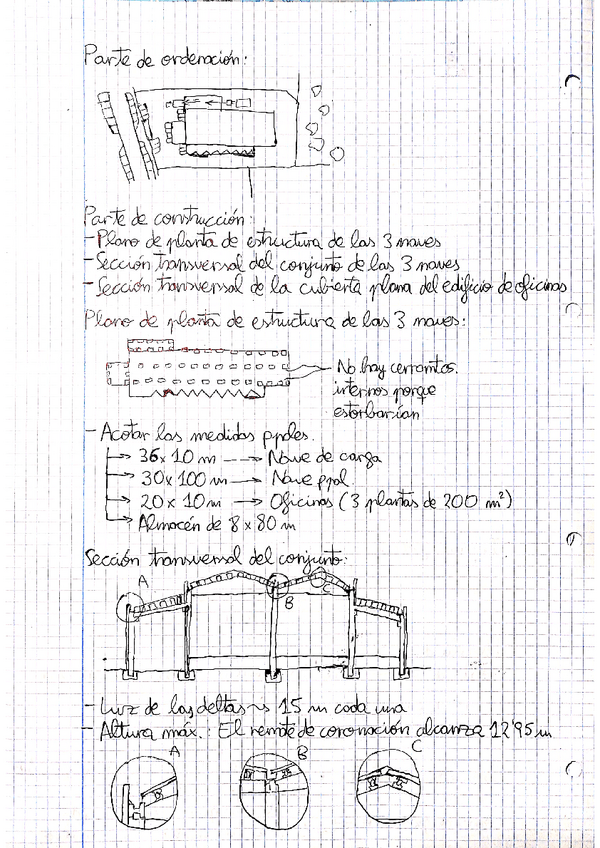 Parte de ordenación:
Parte de construcción:
- Plano de planta de estructura de las 3 naves
- Sección transversal del conjunto de las 3 naves
- Sección transversal de la cubierta plana del edificio de oficinas
Plano de planta de estructura de las 3 naves:
No hay cerramtos.
internos porque
estorbarían
- Acotar las medidas ppales.
36x10 m → Nave de carga
30x100 m → Nave ppal.
20x10 m → Oficinas (3 plantas de 200 m²)
Almacén de 8x80 m
Sección transversal del conjunto:
A
B
C
- Luz de las deltas ~> 15 m cada una
- Altura máx.: El remate de coronación alcanza 12'95 m
A
B
C